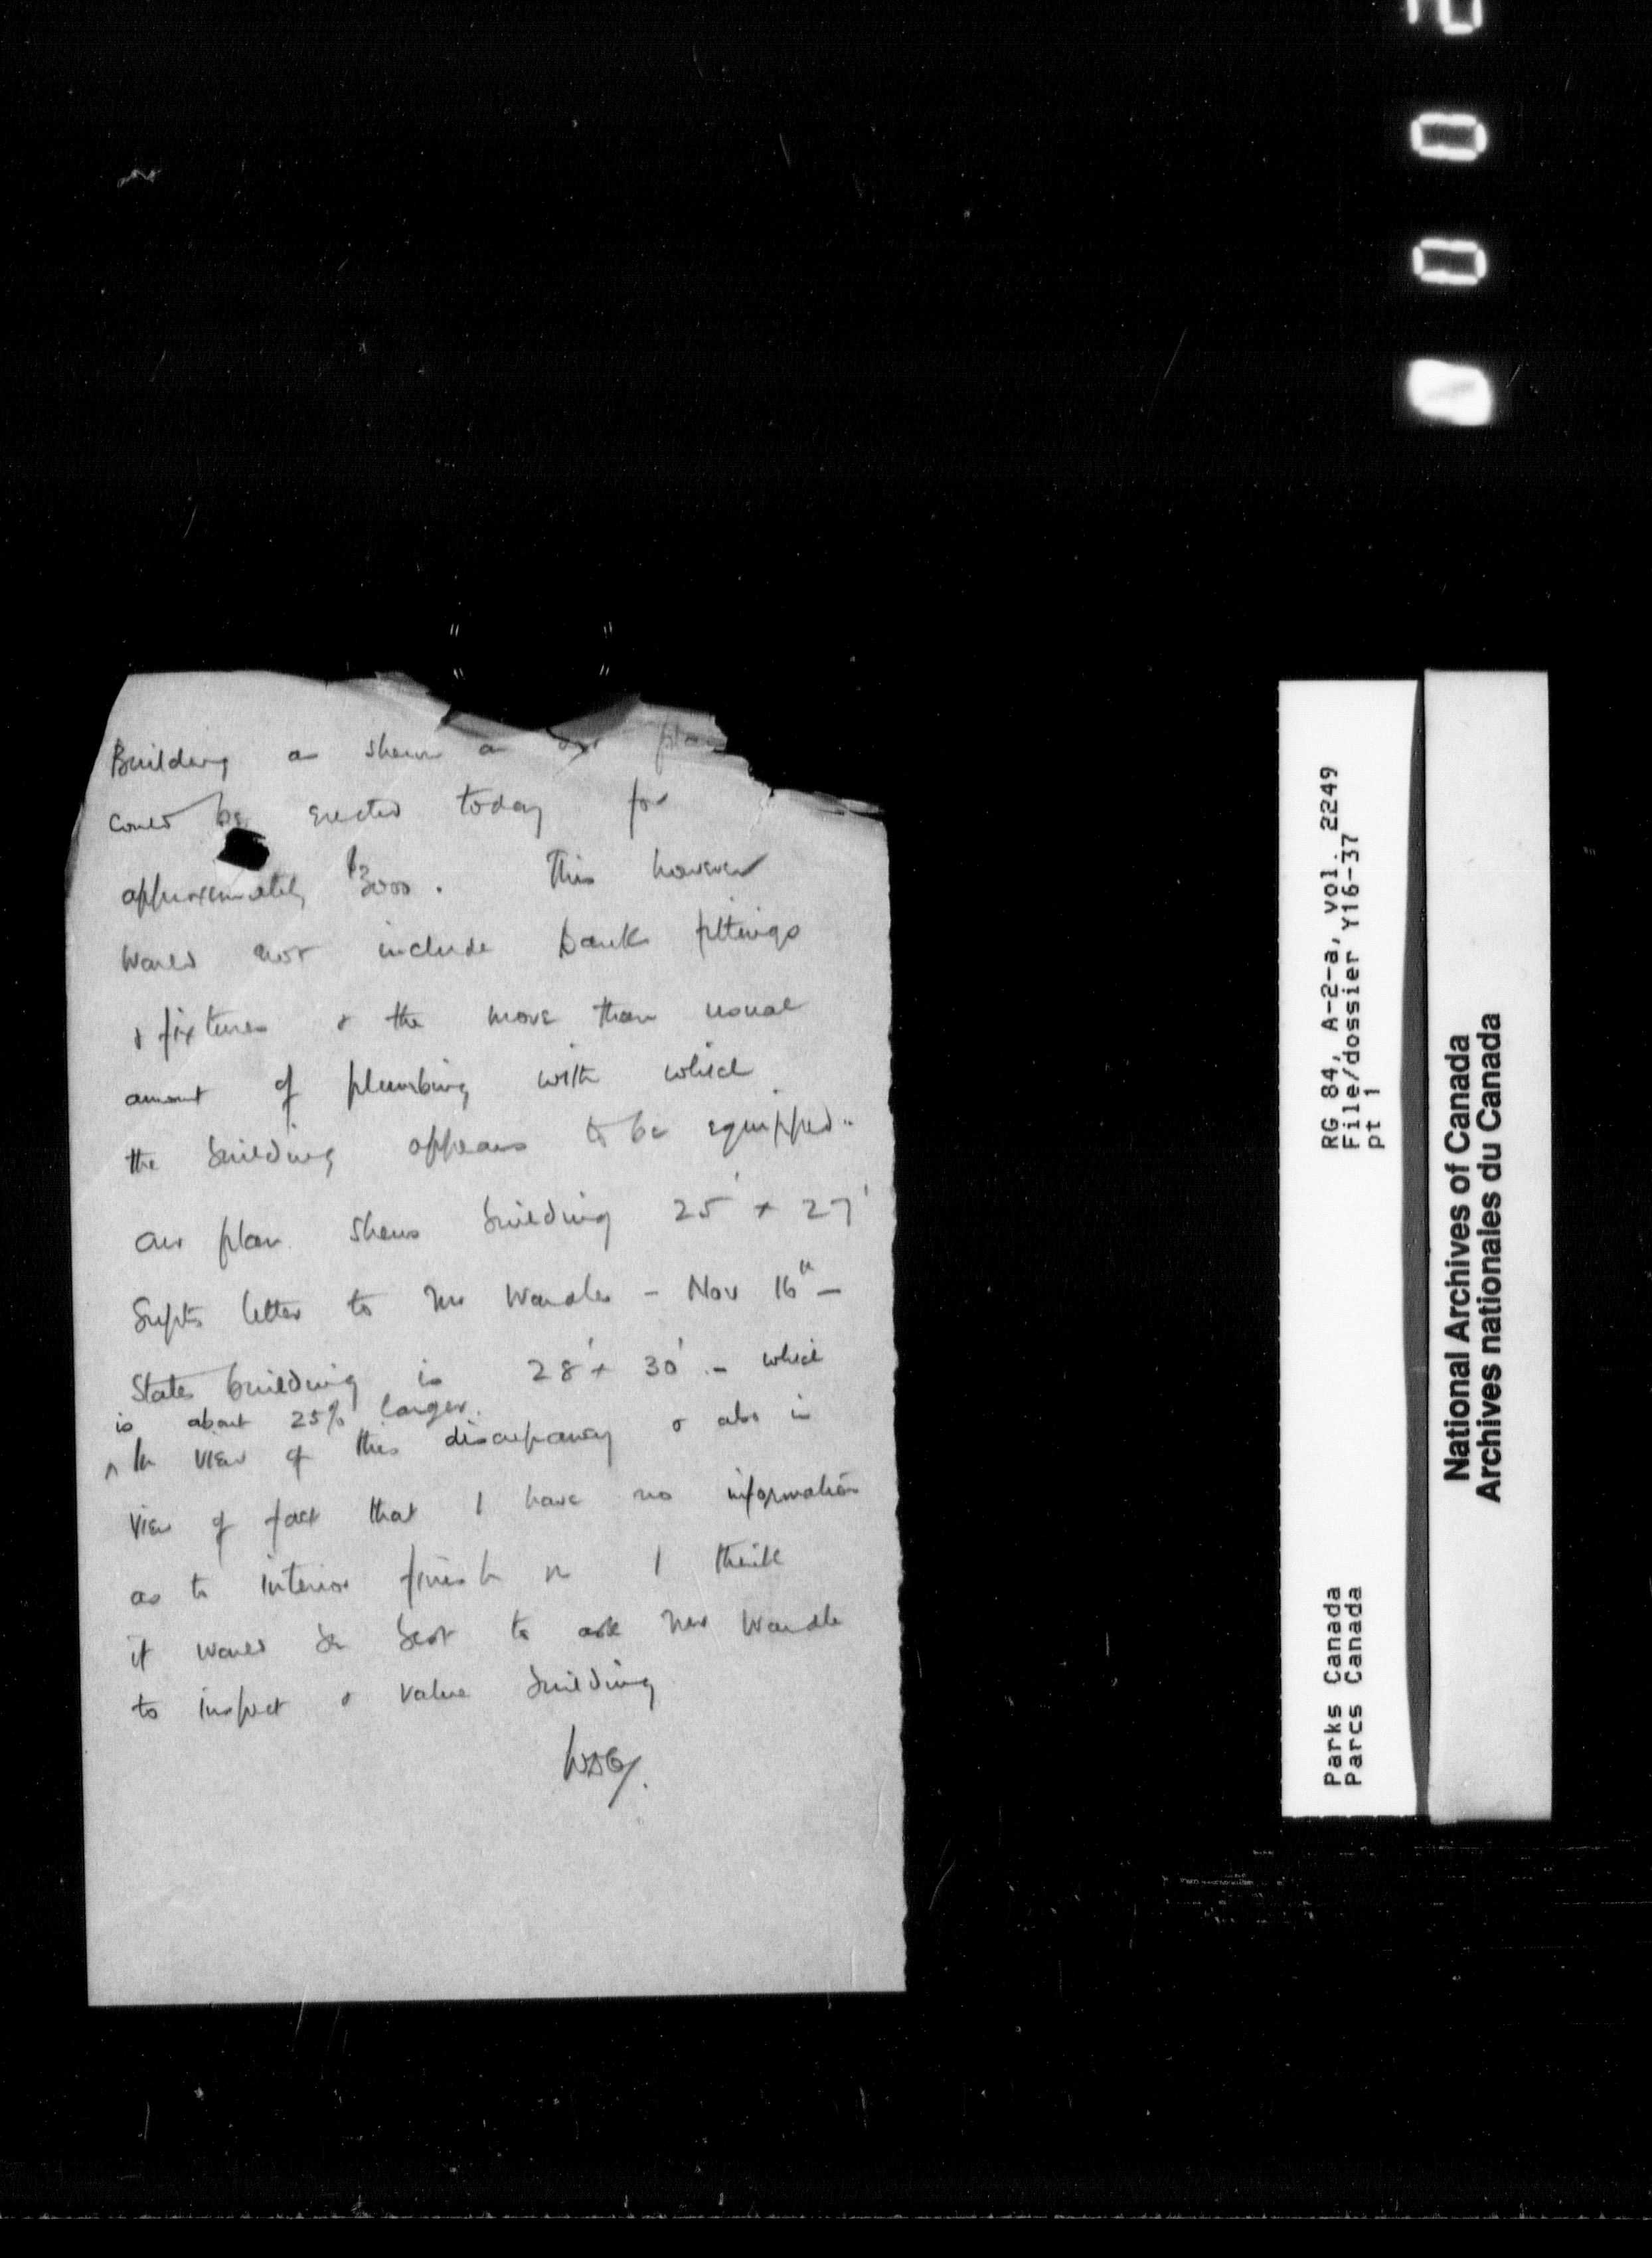 Building as shewn on our plan
could be erected today for
approximately $3000. This however
would not include bank fittings
& fixtures & the more than usual
amount of plumbing with which
the building appears to be equipped.
Our plan shews building 25' x 27'
Supts letter to Mr Wardle - Nov 16th -
States building is 28' x 30' - which
is about 25% larger.
^ In view of this discrepancy & also in
view of fact that I have no information
as to interior finish I think
it would be best to ask Mr Wardle
to inspect & value building
RG 84, A-2-a, vol. 2249
File/dossier Y16-37
pt 1
Parks Canada
Parcs Canada
National Archives of Canada
Archives nationales du Canada